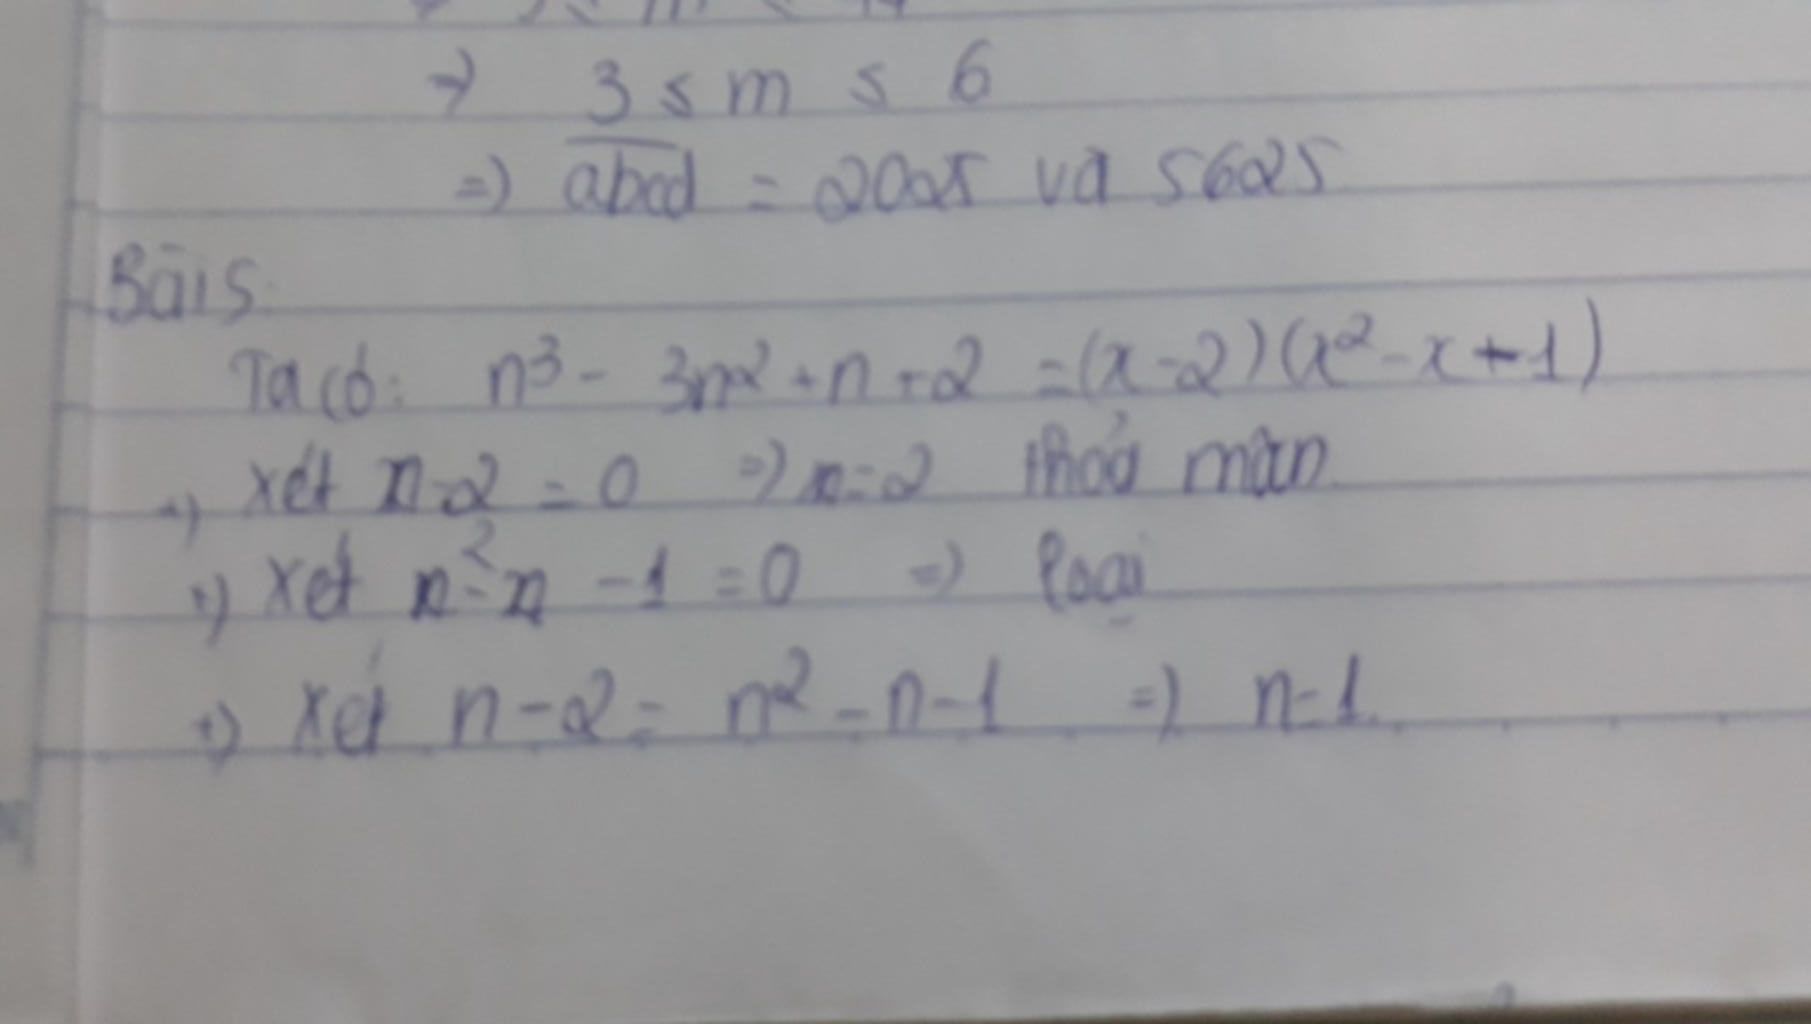 → 3 ≤ m ≤ 6
=) abcd = 2025 và 5625
Bài 5
Ta có: n³ - 3n² + n + 2 = (x - 2)(x² - x + 1)
+) xét n - 2 = 0 =) n = 2 thỏa mãn
+) xét n² - n - 1 = 0 =) loại
+) xét n - 2 = n² - n - 1 =) n = 1